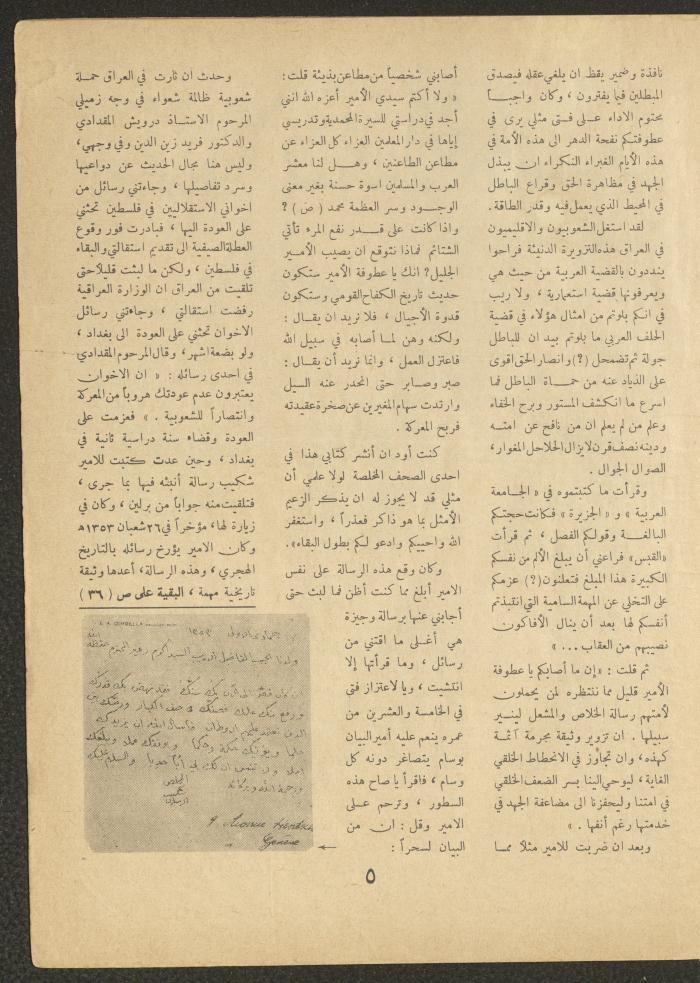 نافذة وضمير يقظ ان يلغي عقله فيصدق
المبطلين فيما يفترون ، وكان واجبــاً
محتوم الاداء عــلى فــتى مثلي يرى في
عطوفتــكم نفحة الدهر الى هذه الأمة في
هذه الأيام الغبراء النكراء ان يبذل
الجهد في مظاهرة الحق وقراع الباطل
في المحيط الذي يعمل فيه وقدر الطاقة .
لقد استغل الشعوبيون والاقليميون
في العراق هذه التزويرة الدنيئة فراحوا
ينددون بالقضية العربية من حيث هي
ويعرفونها قضية استعمارية ، ولا ريب
في انكم بلوتم من امثال هؤلاء في قضية
الحلف العربي ما بلوتم بيد ان للباطل
جولة ثم تضمحل (؟) وانصار الحق اقوى
على الذياد عنه من حمــاة الباطل فما
اسرع ما انكشف المستور وبرح الخفاء
وعلم من لم يعلم ان من نافح عن امتــه
ودينه نصف قرن لا يزال الحلاحل المغوار ،
الصوال الجوال .
وقرأت ما كتبتموه في « الجــامعة
العربية » و « الجزيرة » فكانت حجتــكم
البالغــة وقولــكم الفصل ، ثم قرأت
«القبس» فراعني أن يبلغ الألم من نفسكم
الكبيرة هذا المبلغ فتعلنون (؟) عزمكم
على التخلي عن المهمة السامية التي انتقيذتم
أنفسكم لها بعد أن ينال الأفاكون
نصيبهم من العقاب ... »
ثم قلت : « إن ما أصابكم يا عطوفة
الأمير قليل مما ننتظره لمن يحملون
لأمتهم رسالة الخلاص والمشعل لينــير
سبيلها . ان تزوير وثيقة بجرمة آثمــة
كهذه، وان تجاوز في الانحطاط الخلقي
الغاية ، ليوحي الينا بســر الضعف الخلقي
في امتنا وليحفزنا الى مضاعفة الجهد في
خدمتها رغم أنفها . »
وبعد ان ضربت للامير مثلاً ممــا
أصابني شخصياً من مطاعن بذيئة قلت :
« ولا أكتم سيدي الأمير أعزه الله انني
أجد في دراستي للسيرة المحمدية وتدريسي
إياها في دار المعلمين العزاء كل العزاء عن
مطاعن الطاعنين ، وهــل لنا معشر
العرب والمسلمين اسوة حسنة بغير معنى
الوجــود وسر العظمة محمد ( ص ) ؟
واذا كانت على قــدر نفع المرء تأتي
الشتائم فماذا نتوقع ان يصيب الأمــير
الجليل ؟ انك يا عطوفة الأمير ستكون
حديث تاريخ الكفاح القومي وستكون
قدوة الأجيال ، فلا نريد ان يقــال :
ولكنه وهن لمــا أصابه في سبيل الله
فاعتزل العمل ، وانما نريد أن يقــال :
صبر وصــابر حتى انحدر عنه السيل
وارتدت سهام المغيرين عن صخرة عقيدته
فربح المعركة .
كنت أود ان أنشر كتابي هذا في
احدى الصحف المخلصة لولا علمي أن
مثلي قد لا يجوز له ان يذكر الزعيم
الأمثل بما هو ذاكر فعذراً ، واستغفر
الله واحييكم وادعو لكم بطول البقاء» .
وكان وقع هذه الرسالة على نفس
الامير أبلغ مما كنت أظن فما لبث حتى
أجابني عنها برسالة وجيزة
هي أغــلى ما اقتني من
رسائل ، وما قرأتها إلا
انتشيت ، ويا لاعتزاز فتى
في الخامسة والعشرين من
عمره ينعم عليه أمير البيان
بوسام يتصاغر دونه كل
وسام ، فاقرأ يا صاح هذه
السطور ، وترحم عــلى
الامير وقل : ان من
البيان لسحراً :
وحدث ان ثارت في العراق حمــلة
شعوبية ظالمة شعواء في وجه زميلي
المرحوم الاستــاذ درويش المقدادي
والدكتور فريد زين الدين وفي وجهي ،
وليس هنا مجال الحديث عن دواعيها
وسرد تفاصيلها ، وجاءتني رسائل من
اخواني الاستقلاليين في فلسطين تحثني
على العودة اليها ، فبادرت فور وقوع
العطلة الصيفية الى تقديم استقالتي والبقاء
في فلسطين ، ولكن ما لبثت قليلا حتى
تلقيت من العراق ان الوزارة العراقية
رفضت استقالتي ، وجاءتني رسائل
الاخوان تحثني على العودة الى بغداد ،
ولو بضعة اشهر ، وقال المرحوم المقدادي
في احدى رسائله : « ان الاخوان
يعتبرون عدم عودتك هروباً من المعركة
وانتصاراً للشعوبية . » فعزمت على
العودة وقضاء سنة دراسية ثانية في
بغداد ، وحين عدت كتبت للامير
شكيب رسالة أنبئه فيها بما جرى ،
فتلقيت منه جواباً من برلين ، وكان في
زيارة لها، مؤخراً في ٢٦ شعبان ١٣٥٣ هـ
وكان الامير يؤرخ رسائله بالتاريخ
الهجري ، وهذه الرسالة، أعدها وثيقة
تاريخية مهمة ، البقية على ص ( ٣٦ )
جمادى الاولى ١٣٥٤
والسلام عليك
ورحمة الله وبركاته
المخلص
شكيب
ارسلان
Genève
٥